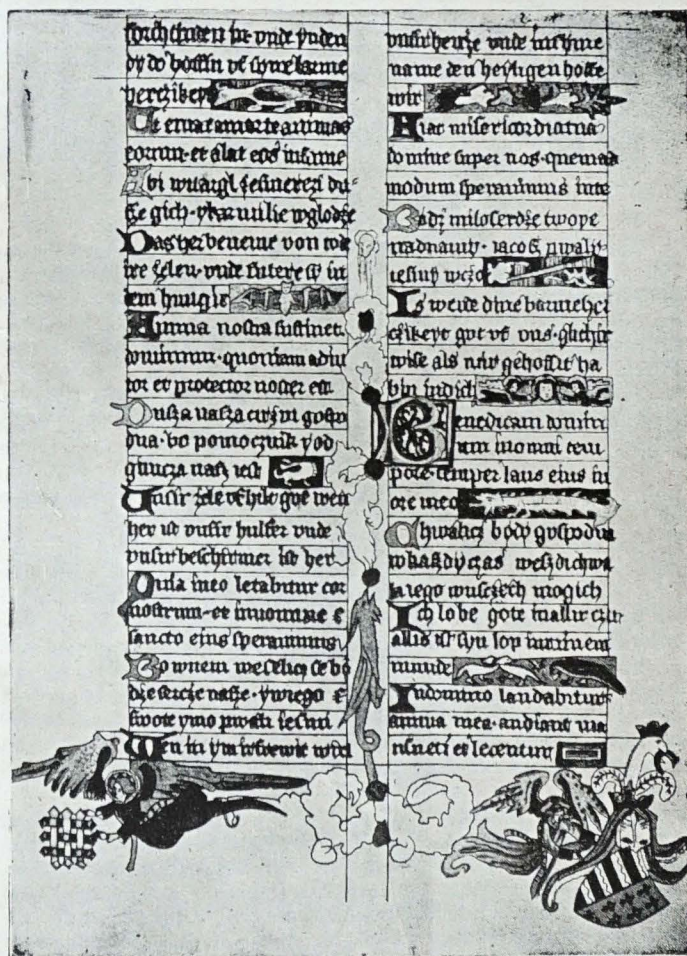 vnde ynden
dy do hoffin vf syne barme
herczikeyt
Ut eruat a morte animas
eorum et alat eos in fame
Abi
sze gich y karmil ie w glodze
Das her beneme von tode
ire zelen vnde futere sy in
dem hungir
Anima nostra sustinet
dominum quoniam adiu
tor et protector noster est
Dusza nasza czirzpi gospo
dna bo pomocznik y od
gimcza nasz iest
Vnsir zele vf hilt got wen
her ist vnsir hulfer vnde
vnsir beschirmer ist her
Quia in eo letabitur cor
nostrum et in nomine
sancto eius sperauimus
Bo w nem weselicz se bo
dze sercze nasze y w iego
swote ymo pwali iesmi
Wen in ym irfrewit wirt
vnsir hercze vnde in syme
name den heyligen hoffe
wir
Fiat misericordia tua
domine super nos quemad
modum sperauimus in te
Bodz miloserdze twoye
nad nami iaco pwali
iesmy w czo
Is werde dine barmeher
czikeyt got vf vns glichir
wise als wir gehoffit ha
bin in dich
Benedicam domin
um in omni tem
pore semper laus eius in
ore meo
Chwalicz bodo gospodna
w kaszdy czas weszdi chwa
la iego w uszczech mogich
Ich lobe gote in allir czit
allis ist syn lop in minem
munde
In domino laudabitur
anima mea audiant ma
nsueti et letentur